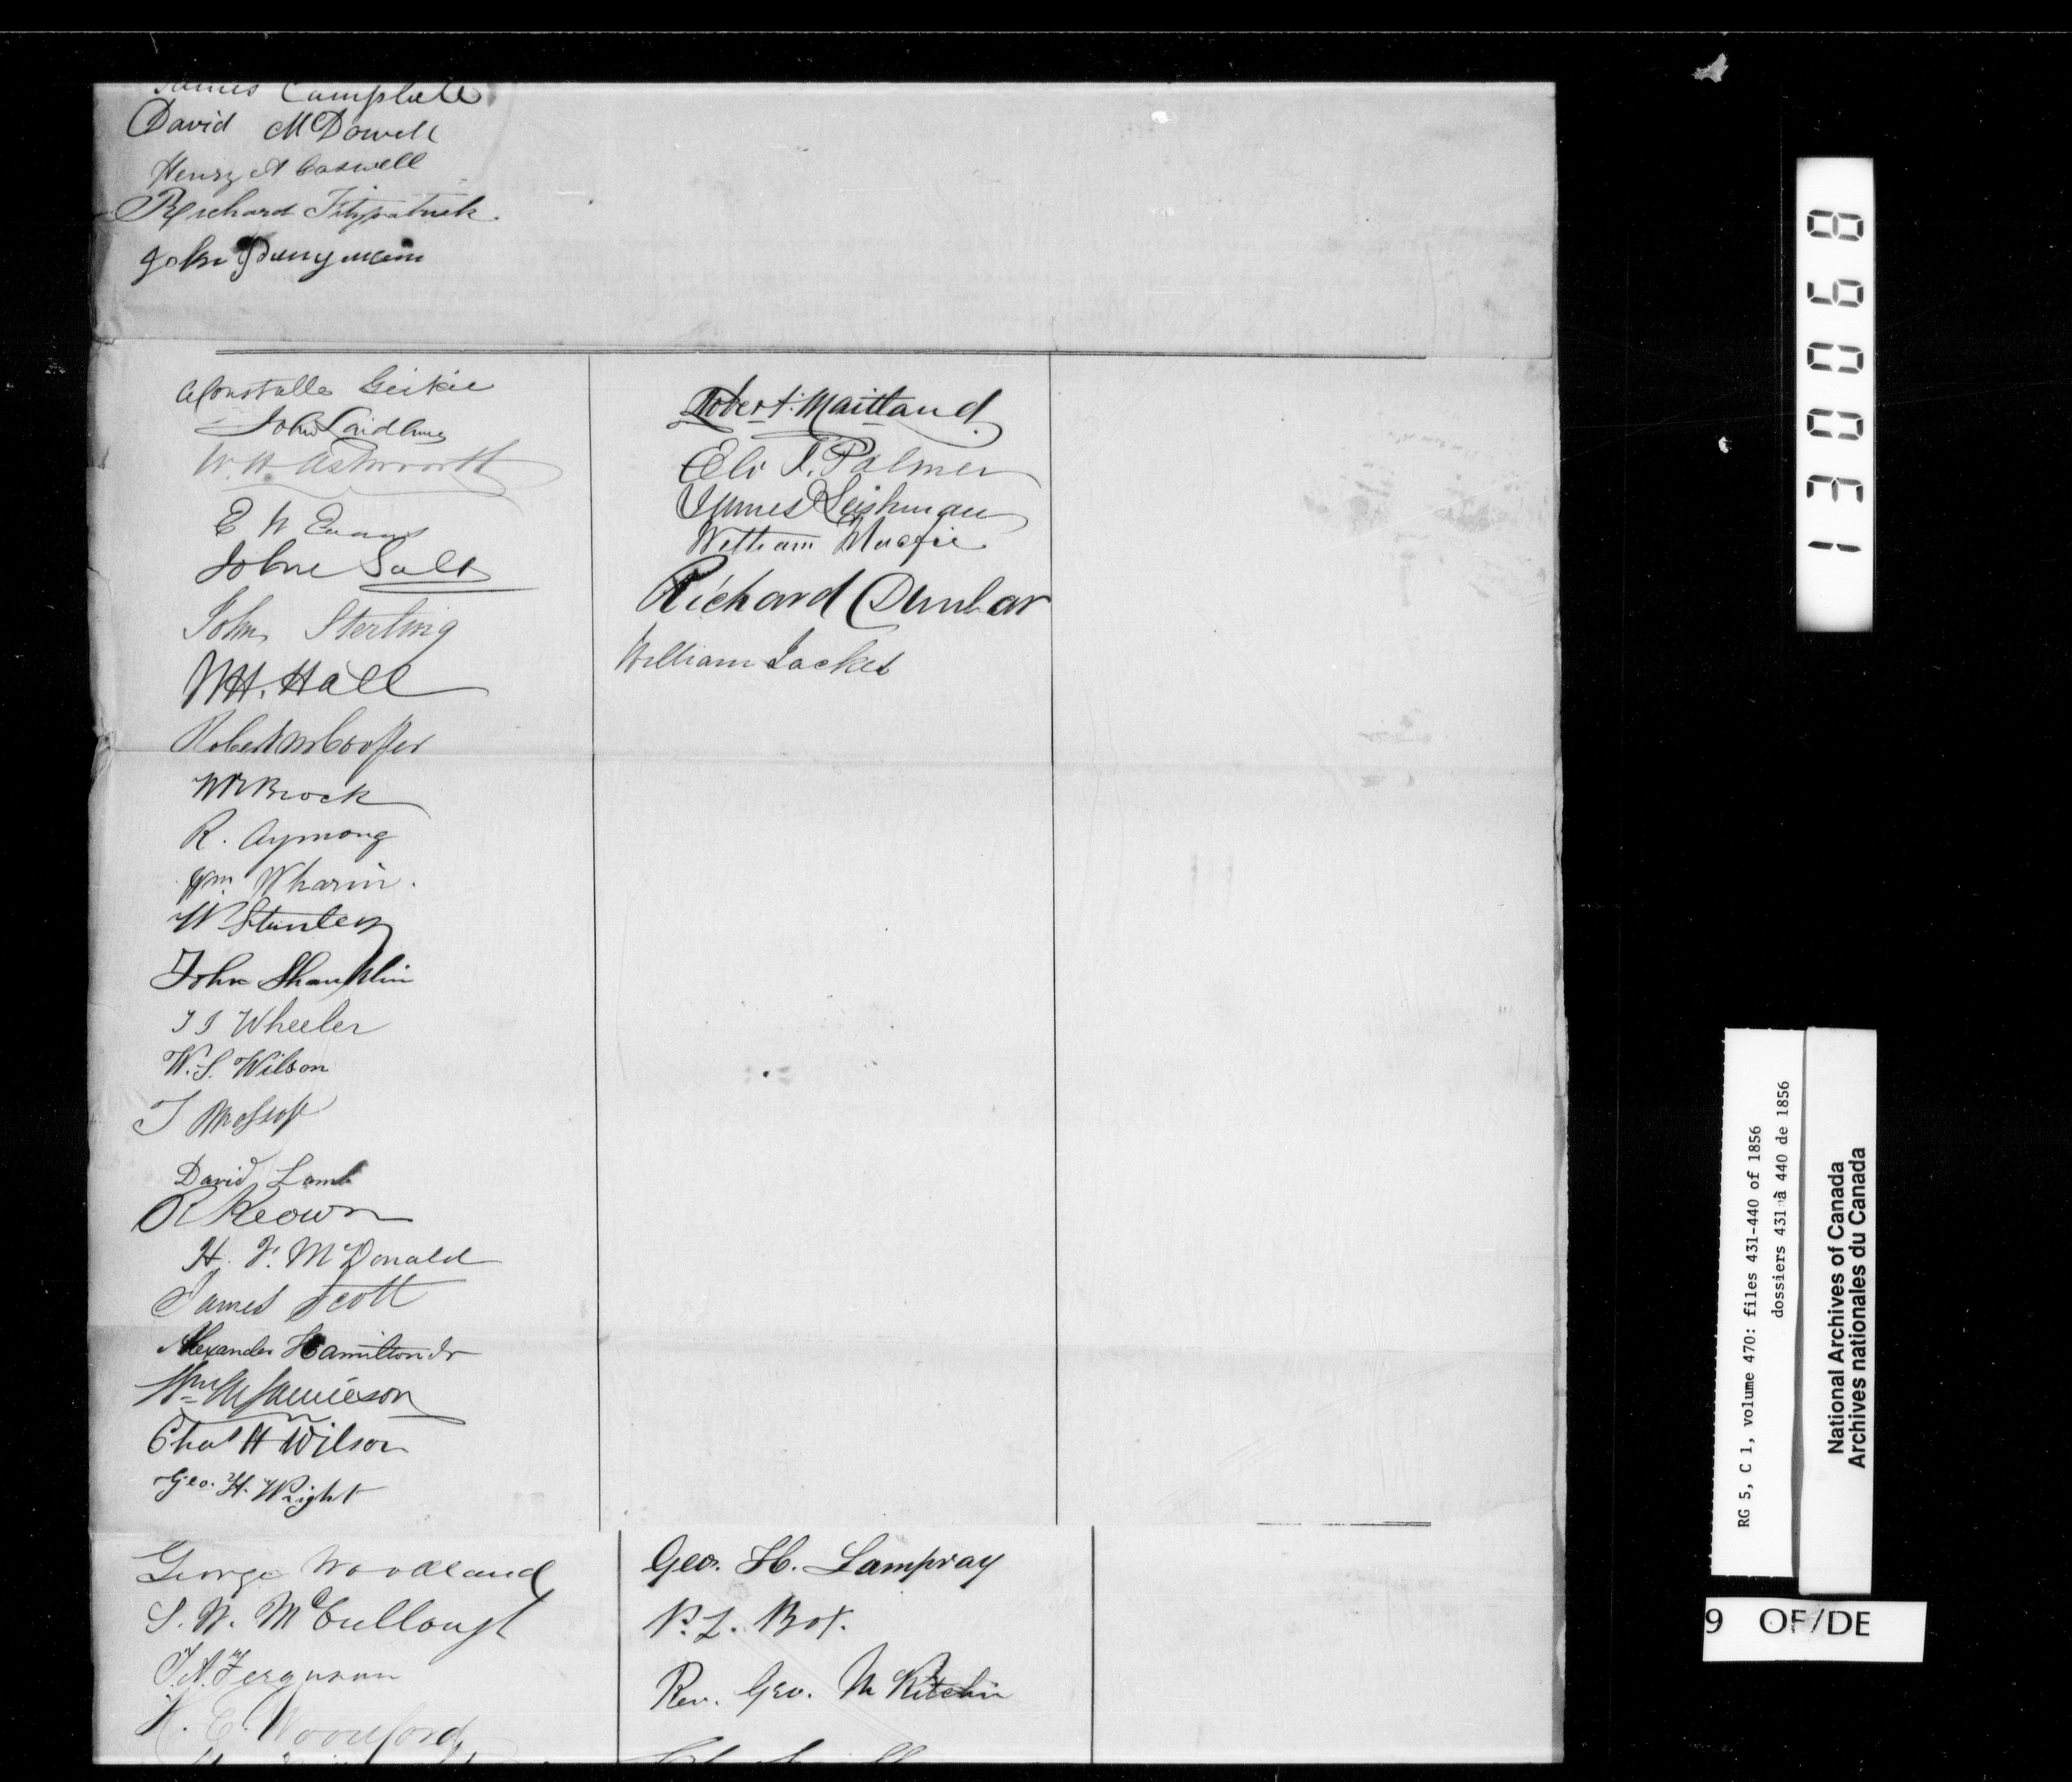 James Campbell
David McDowell
Henry A Caswell
Richard Fitzpatrick.
John
Constable Geikie
John Laidlaw
W. H. Ashworth
E W Evans
John Salt
John Sterling
W H. Hall
Robert M Cooper
W R Brock
R. Aymong
Wm Wharin.
W Stanley
John Shanklin
T J Wheeler
W. S. Wilson
T
David Lamb
R Keown
H. F. McDonald
James Scott
Alexander Hamilton Jr
Wm Jamieson
Chas H Wilson
Geo. H. Wright
Robert Maitland
Eli T. Palmer
James Leishman
William Macfie
Richard Dunbar
William Jacket
George Woodland
S. W. McCullough
T. A. Ferguson
H. C. Wooreford
Geo. H. Lampray
P. L. Box.
Rev. Geo. McRitchie
130068
RG 5, C 1, volume 470: files 431-440 of 1856
dossiers 431 à 440 de 1856
National Archives of Canada
Archives nationales du Canada
9 OF/DE